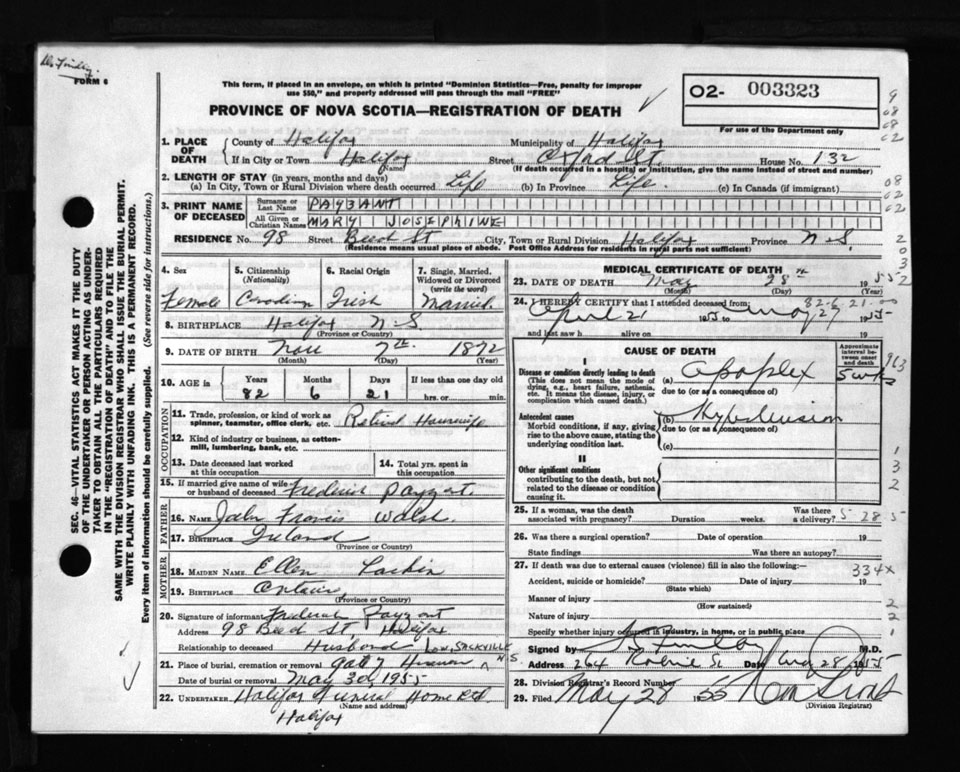 FORM 6
This form, if placed in an envelope, on which is printed "Dominion Statistics—Free, penalty for improper
use $50," and properly addressed will pass through the mail "FREE"
PROVINCE OF NOVA SCOTIA—REGISTRATION OF DEATH
O2- 003323
For use of the Department only
SEC. 46—VITAL STATISTICS ACT MAKES IT THE DUTY
OF THE UNDERTAKER OR PERSON ACTING AS UNDER-
TAKER TO OBTAIN ALL THE PARTICULARS REQUIRED
IN THE "REGISTRATION OF DEATH" AND TO FILE THE
SAME WITH THE DIVISION REGISTRAR WHO SHALL ISSUE THE BURIAL PERMIT.
WRITE PLAINLY WITH UNFADING INK. THIS IS A PERMANENT RECORD.
Every item of information should be carefully supplied. (See reverse side for instructions.)
1. PLACE OF DEATH County of Halifax Municipality of Halifax
If in City or Town Halifax Street Oxford St. House No. 132
(Name) (If death occurred in a hospital or institution, give the name instead of street and number)
2. LENGTH OF STAY (in years, months and days)
(a) In City, Town or Rural Division where death occurred Life (b) In Province Life. (c) In Canada (if immigrant)
3. PRINT NAME OF DECEASED Surname or Last Name PAYZANT
All Given or Christian Names MARY JOSEPHINE
RESIDENCE No. 98 Street St City, Town or Rural Division Halifax Province N-S
(Residence means usual place of abode. Post Office Address for residents in rural parts not sufficient)
4. Sex 5. Citizenship (Nationality) 6. Racial Origin 7. Single, Married, Widowed or Divorced (write the word)
Female Canadian Irish Married.
8. BIRTHPLACE Halifax N-S
(Province or Country)
9. DATE OF BIRTH Nov 7th 1872
(Month) (Day) (Year)
10. AGE in Years Months Days If less than one day old
82 6 21 hrs. or min.
OCCUPATION
11. Trade, profession, or kind of work as spinner, teamster, office clerk, etc. Retired Housewife
12. Kind of industry or business, as cotton-mill, lumbering, bank, etc.
13. Date deceased last worked at this occupation
14. Total yrs. spent in this occupation
15. If married give name of wife or husband of deceased Frederick Payzant.
FATHER
16. NAME John Francis Walsh.
17. BIRTHPLACE Ireland
(Province or Country)
MOTHER
18. MAIDEN NAME Ellen Larkin
19. BIRTHPLACE
(Province or Country)
20. Signature of informant Frederick Payzant
Address 98 St Halifax
Relationship to deceased Husband
21. Place of burial, cremation or removal Low. SACKVILLE N.S
Date of burial or removal May 30, 1955
22. UNDERTAKER Halifax Funeral Home
(Name and address)
Halifax
MEDICAL CERTIFICATE OF DEATH
23. DATE OF DEATH May 28th 1955
(Month) (Day) (Year)
82-6-21-00
24. I HEREBY CERTIFY that I attended deceased from:
April 21 1955 to May 27 1955
and last saw h alive on 19
CAUSE OF DEATH
Approximate interval between onset and death
I
Disease or condition directly leading to death (a) Apoplex 5 wks
(This does not mean the mode of dying, e.g., heart failure, asthenia, etc. It means the disease, injury, or complication which caused death.)
due to (or as a consequence of)
Antecedent causes (b) Hypertension
Morbid conditions, if any, giving rise to the above cause, stating the underlying condition last.
due to (or as a consequence of)
(c)
II
Other significant conditions
contributing to the death, but not related to the disease or condition causing it.
25. If a woman, was the death associated with pregnancy? Duration weeks. Was there a delivery? 5 28 5
26. Was there a surgical operation? Date of operation 19
State findings Was there an autopsy?
27. If death was due to external causes (violence) fill in also the following:—
334x
Accident, suicide or homicide? Date of injury 19
(State which)
Manner of injury
(How sustained)
Nature of injury
Specify whether injury occurred in industry, in home, or in public place
Signed by M.D.
Address 264 Robie St Date May 28 1955
28. Division Registrar's Record Number
29. Filed May 28 1955
(Division Registrar)